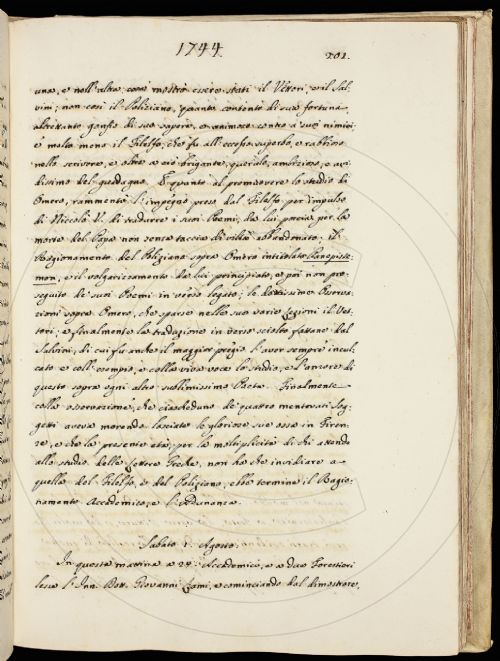 1744.
201.
uno, e nell'altro: così mostrò essere stati il Vettori, e il Sal-
vini; non così il Poliziano, quanto contento di sua fortuna,
altrettanto gonfio di suo sapere, e animoso contro a' suoi nimici;
e molto meno il Filelfo, che fu all'eccesso superbo, e rabbioso
nello scrivere, e oltre a ciò brigante, querulo, ambizioso, e avi-
dissimo del guadagno. E quanto al promuovere lo studio di
Omero, rammentò l'impegno preso dal Filelfo per impulso
di Niccolò V. di tradurre i suoi Poemi, da lui poscia per la
morte del Papa non senza taccia di viltà abbandonato; il
Ragionamento del Poliziano sopra Omero intitolato Panepiste-
mon, e il volgarizzamento da lui principiato, e poi non pro-
seguito de' suoi Poemi in verso legato; le dottissime Osserva-
zioni sopra Omero, che sparse nelle sue varie Lezioni il Vet-
tori; e finalmente la traduzione in verso sciolto fattane dal
Salvini, di cui fu anche il maggior pregio l'aver sempre incul-
cato e coll'esempio, e colla viva voce lo studio, e l'amore di
questo sopra ogni altro sublimissimo Poeta. Finalmente
colla osservazione, che ciascheduno de' quattro mentovati Sog-
getti aveva morendo lasciato le gloriose sue ossa in Firen-
ze, e che la presente età, per la moltiplicità di chi attende
allo studio delle Lettere Greche, non ha che invidiare a
quella del Filelfo, e del Poliziano, ebbe termine il Ragio-
namento Accademico, e l'Adunanza.
Sabato 1. Agosto.
In questa mattina a 24. Accademici, e a due Forestieri
lesse l'Inn. Dott. Giovanni Lami, e cominciando dal dimostrare,